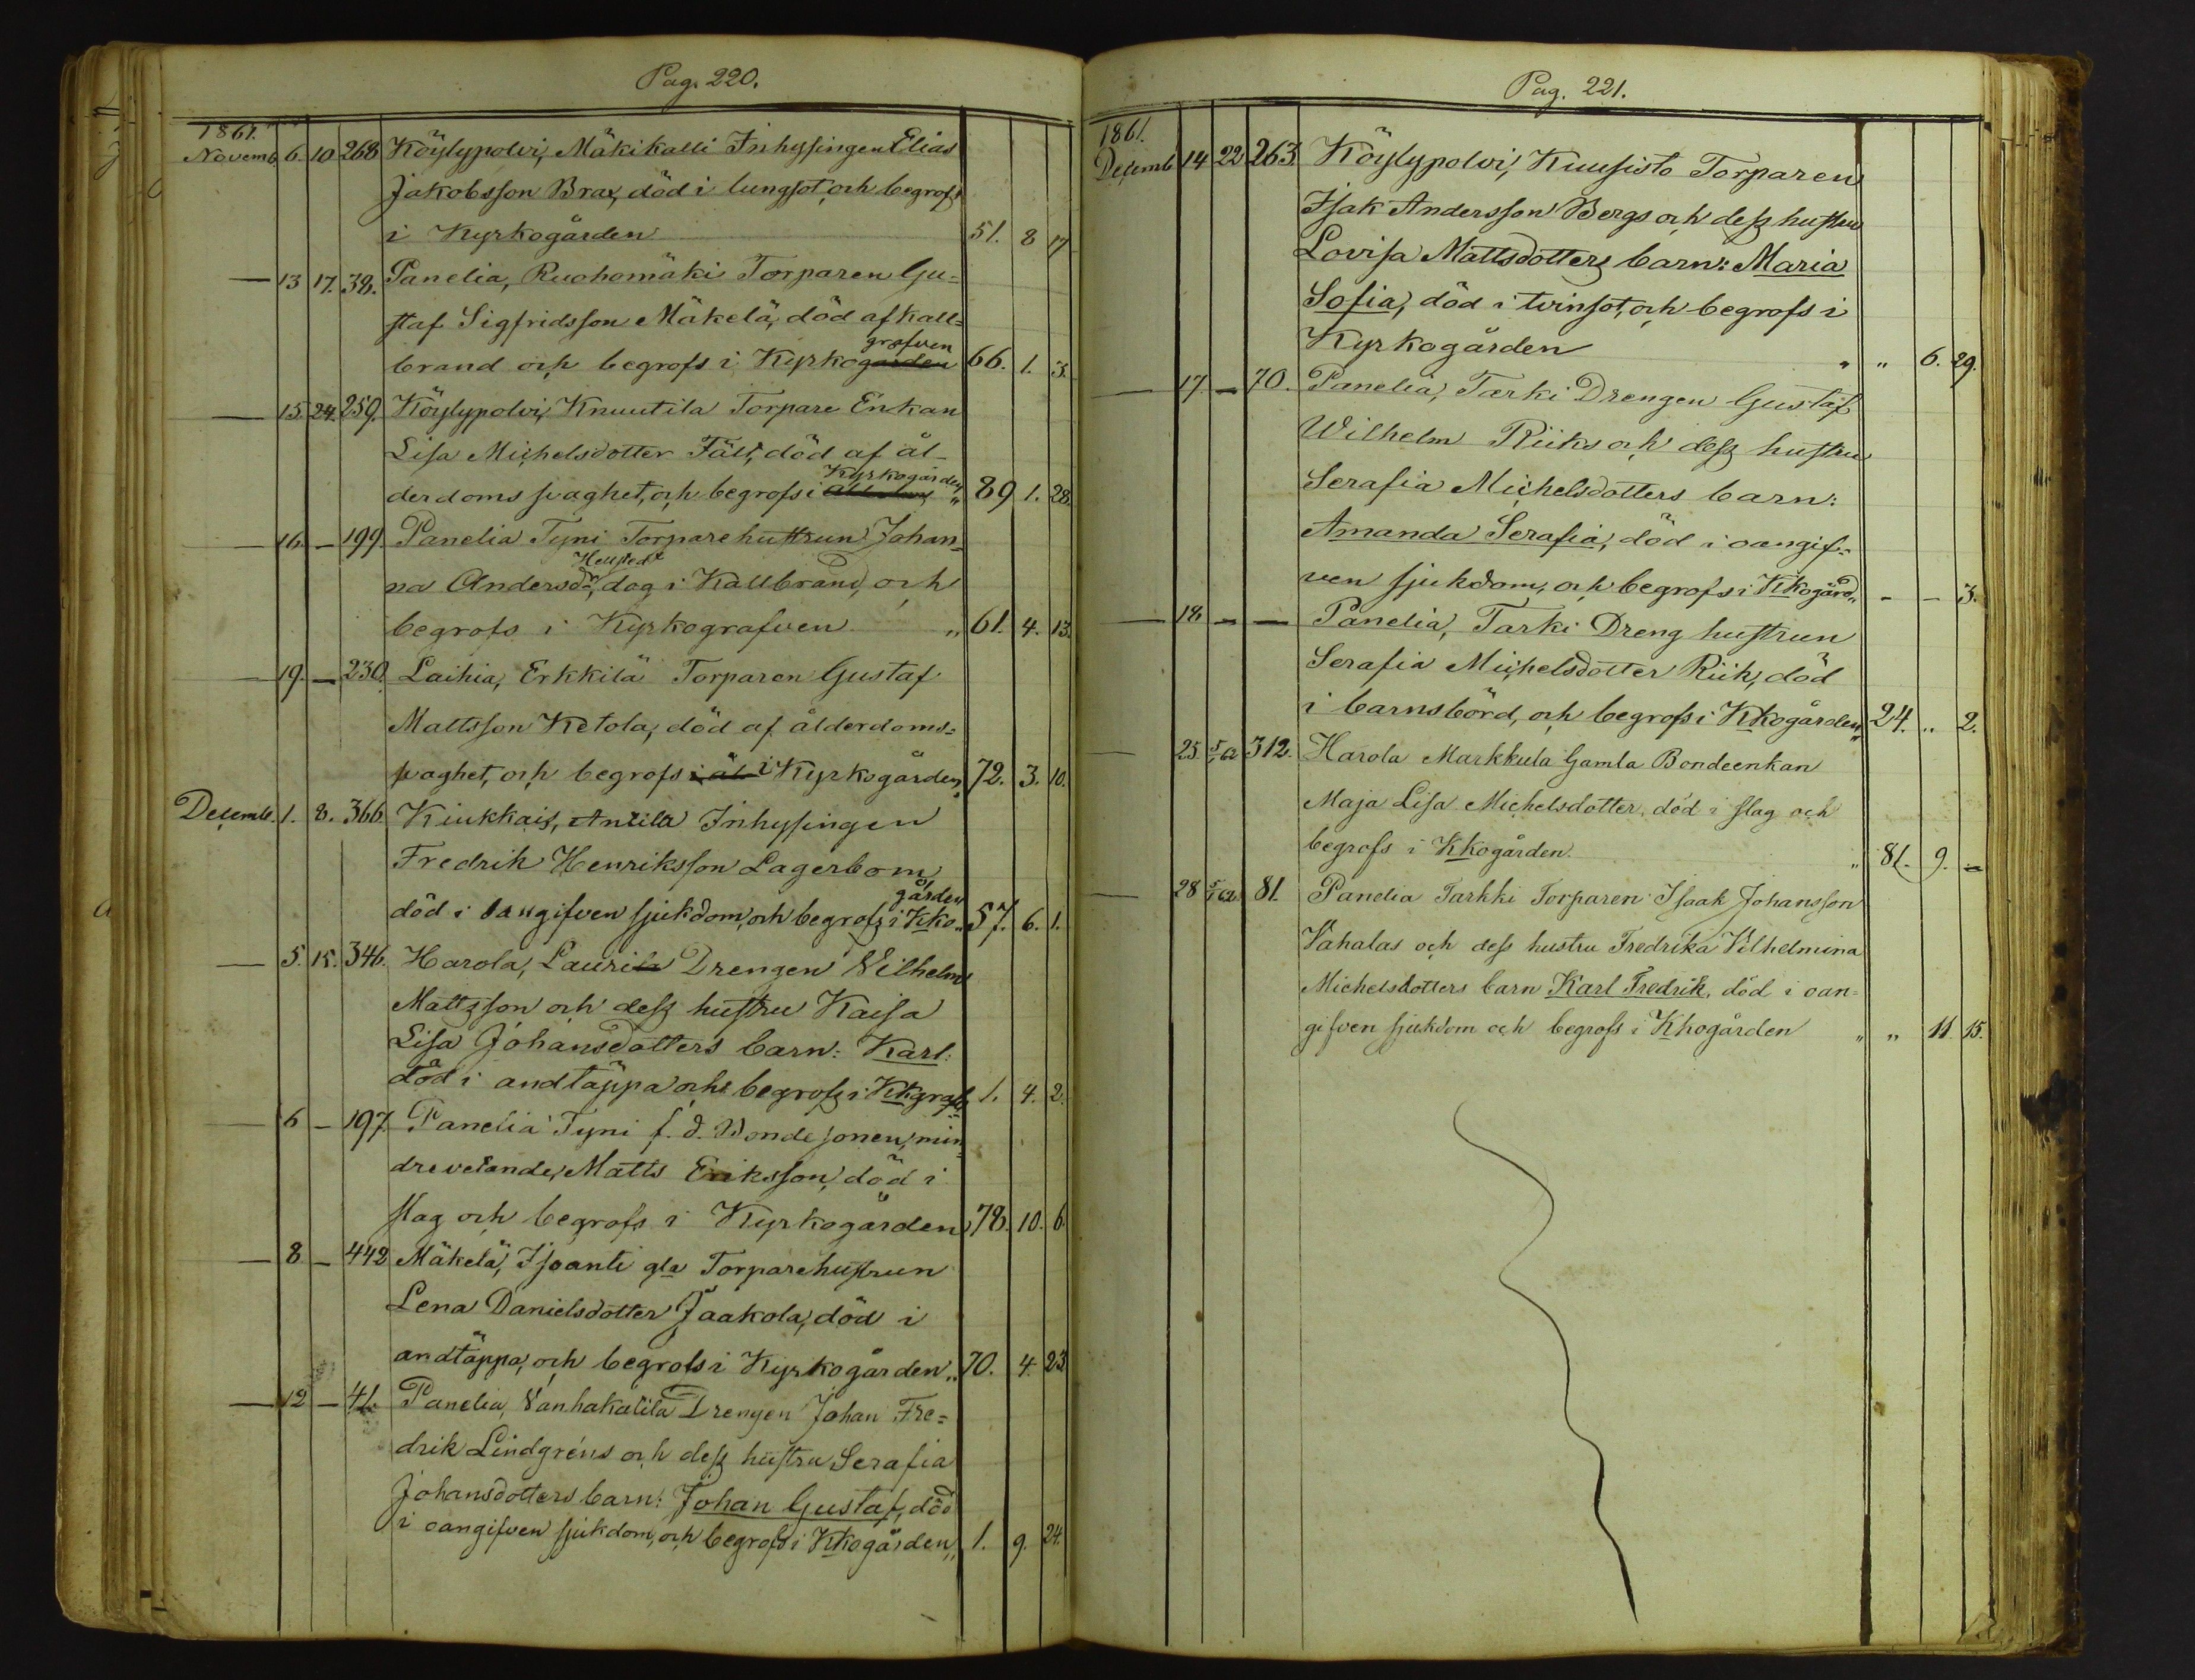 Pag. 220.
1861.
Novemb. 6. 10 268 Köylypolvi, Mäkikalli Inhysingen Elias
Jakobsson Brax, död i lungsot, och begrofs
i Kyrkogården 51. 8 17
— 13 17. 38. Panelia, Ruohomäki Torparen Gu=
staf Sigfridsson Mäkelä, död af kall=
grafven
brand och begrofs i Kyrkogården 66. 1. 3.
— 15. 24. 259. Köylypolvi, Knuutila Torpare Enkan
Lisa Michelsdotter Fält, död af ål-
Kyrkogården
derdoms svaghet, och begrofs i „ 89 1. 28.
— 16. — 199. Panelia Tyni Torparehustrun Johan=
Hellstedt
na Andersdr, dog i Kallbrand, och
begrofs i Kyrkografven „ 61. 4. 13.
— 19. — 230. Laihia, Erkkilä Torparen Gustaf
Mattsson Ketola, död af ålderdoms=
svaghet, och begrofs i ål i Kyrkogården, 72. 3. 10.
Decemb. 1. 8. 366. Kiukkais, Anttila Inhysingen
Fredrik Henriksson Lagerbom
gården
död i oangifven sjukdom, och begrofs i Kko„ 57. 6. 1.
— 5. 15. 346. Harola, Laurila Drengen Vilhelm
Mattsson och dess hustru Kaisa
Lisa Johansdotters barn: Karl:
död i andtäppa och begrofs i Kkgrafv 1. 4. 2.
— 6 — 197 Panelia Tyni f. d. Bonde sonen, min
drevetande, Matts Eriksson, död i
slag och begrofs i Kyrkogården 78. 10. 6
— 8 — 442 Mäkelä, Isoanti gla Torparehustrun
Lena Danielsdotter Jaakola, död i
andtäppa, och begrofs i Kyrkogården „ 70. 4. 23
— 12 — 41. Panelia, Vanhakalila Drengen Johan Fre=
drik Lindgréns och dess hustru Serafia
Johansdotters barn: Johan Gustaf, död
i oangifven sjukdom, och begrofs i Kkogården „ 1. 9. 24.
Pag. 221.
1861.
Decemb 14 22 263. Köylypolvi, Kuusisto Torparen
Isak Andersson Bergs och dess hustru
Lovisa Mattsdotters barn: Maria
Sofia, död i tvinsot, och begrofs i
Kyrkogården „ „ 6. 29.
— 17. — 70. Panelia, Tarki Drengen Gustaf
Wilhelm Riiks och dess hustru
Serafia Michelsdotters barn:
Amanda Serafia, död i oangif=
ven sjukdom, och begrofs i Kkogård„ - - 3.
— 18 — — Panelia, Tarki Dreng hustrun
Serafia Michelsdotter Riik, död
i barnsbörd, och begrofs i Kkogården „ 24. „ 2.
— 25. 5/1 62 312. Harola Markkula Gamla Bondeenkan
Maja Lisa Michelsdotter, död i slag och
begrofs i Kkogården. „ 81. 9. —
— 28 5/1 62. 81. Panelia Tarkki Torparen Isaak Johansson
Vahalas och dess hustru Fredrika Vilhelmina
Michelsdotters barn Karl Fredrik, död i oan=
gifven sjukdom och begrofs i Kkogården „ „ 11. 15.